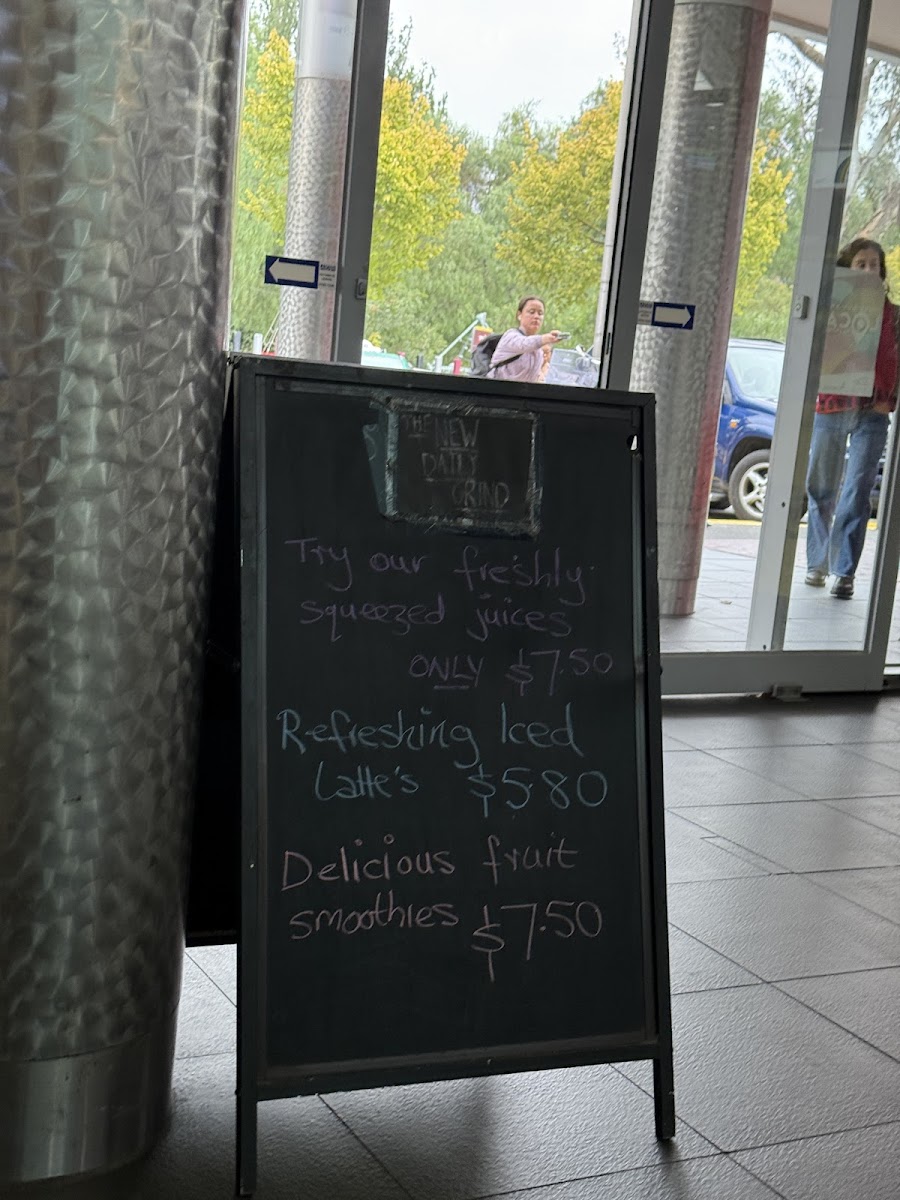 THE NEW
DAILY
GRIND
Try our freshly
squeezed juices
ONLY $7.50
Refreshing Iced
Latte's $5.80
Delicious fruit
smoothies $7.50